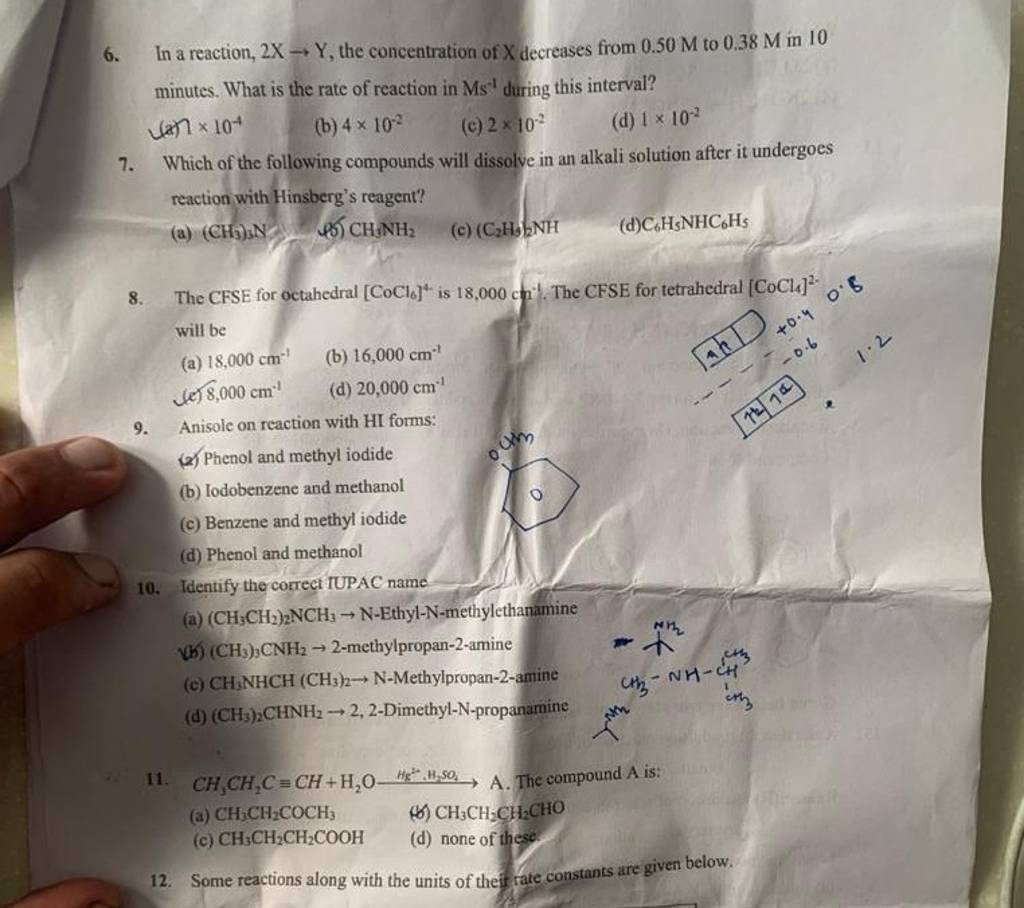 6. In a reaction, 2X → Y, the concentration of X decreases from 0.50 M to 0.38 M in 10
minutes. What is the rate of reaction in Ms⁻¹ during this interval?
(a) 1 × 10⁻⁴ (b) 4 × 10⁻² (c) 2 × 10⁻² (d) 1 × 10⁻²
7. Which of the following compounds will dissolve in an alkali solution after it undergoes
reaction with Hinsberg's reagent?
(a) (CH₃)₃N (b) CH₃NH₂ (c) (C₂H₅)₂NH (d)C₆H₅NHC₆H₅
8. The CFSE for octahedral [CoCl₆]⁴⁻ is 18,000 cm⁻¹. The CFSE for tetrahedral [CoCl₄]²⁻
will be
0.8
+0.4
(a) 18,000 cm⁻¹ (b) 16,000 cm⁻¹
-0.6 1.2
(c) 8,000 cm⁻¹ (d) 20,000 cm⁻¹
9. Anisole on reaction with HI forms:
OCH₃
(a) Phenol and methyl iodide
(b) Iodobenzene and methanol
(c) Benzene and methyl iodide
(d) Phenol and methanol
10. Identify the correct IUPAC name
(a) (CH₃CH₂)₂NCH₃ → N-Ethyl-N-methylethanamine
NH₂
(b) (CH₃)₃CNH₂ → 2-methylpropan-2-amine
CH₃
CH₃ - NH - CH
CH₃
(c) CH₃NHCH (CH₃)₂→ N-Methylpropan-2-amine
(d) (CH₃)₂CHNH₂ → 2, 2-Dimethyl-N-propanamine
NH₂
11. CH₃CH₂C ≡ CH + H₂O —Hg²⁺, H₂SO₄→ A. The compound A is:
(a) CH₃CH₂COCH₃ (b) CH₃CH₂CH₂CHO
(c) CH₃CH₂CH₂COOH (d) none of these.
12. Some reactions along with the units of their rate constants are given below.